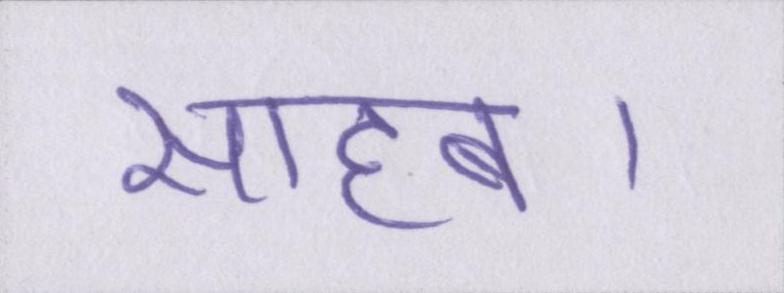 साहब।